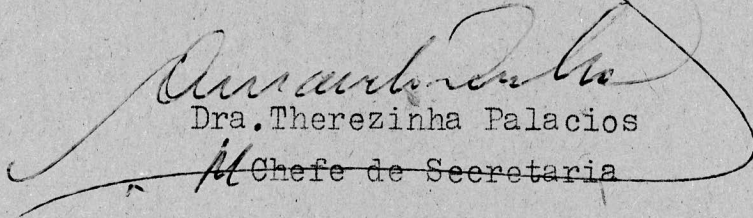 Dra.Therezinha Palacios
Chefe de Secretaria